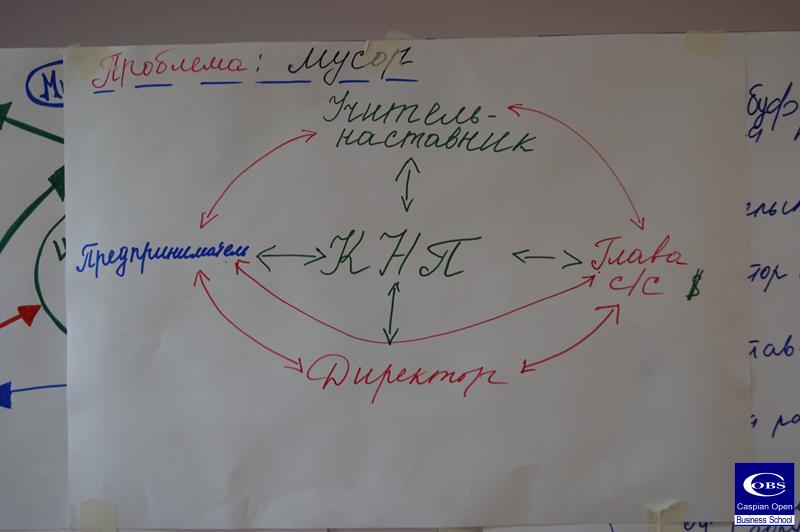 Проблема: мусор
Учитель-
наставник
Предприниматель
КНП
Глава
с/с $
Директор
буф
тор
тав
COBS
Caspian Open
Business School